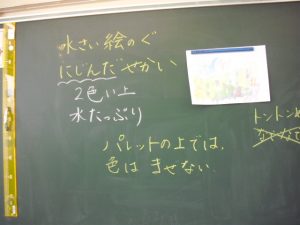 水さい絵のぐ
にじんだせかい
2色い上
水たっぷり
パレットの上では、
色は ませない
トントンや